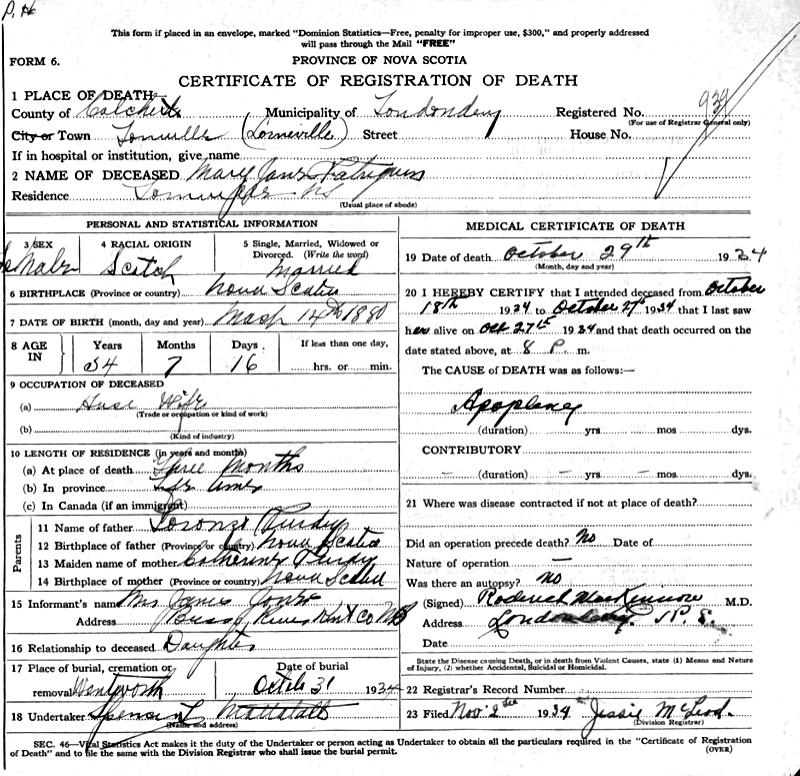 This form if placed in an envelope, marked "Dominion Statistics—Free, penalty for improper use, $300," and properly addressed
will pass through the Mail "FREE"
FORM 6.
PROVINCE OF NOVA SCOTIA
CERTIFICATE OF REGISTRATION OF DEATH
1 PLACE OF DEATH
County of Colchester Municipality of Londonderry Registered No. 939
(For use of Registrar General only)
City or Town (Lorneville) Street House No.
If in hospital or institution, give name
2 NAME OF DECEASED Mary Jane Patriquin
Residence NS
(Usual place of abode)
PERSONAL AND STATISTICAL INFORMATION
3 SEX 4 RACIAL ORIGIN 5 Single, Married, Widowed or
Divorced. (Write the word)
Scotch Married
6 BIRTHPLACE (Province or country) Nova Scotia
7 DATE OF BIRTH (month, day and year) 14th 1880
8 AGE IN Years Months Days If less than one day,
54 7 16 hrs. or min.
9 OCCUPATION OF DECEASED
(a) House Wife
(Trade or occupation or kind of work)
(b)
(Kind of industry)
10 LENGTH OF RESIDENCE (in years and months)
(a) At place of death Three Months
(b) In province Life time
(c) In Canada (if an immigrant)
Parents
11 Name of father Lorenzo Purdy
12 Birthplace of father (Province or country) Nova Scotia
13 Maiden name of mother Catherine Purdy
14 Birthplace of mother (Province or country) Nova Scotia
15 Informant's name Mrs James Jones
Address River Kent Co NB
16 Relationship to deceased Daughter
17 Place of burial, cremation or Date of burial
removal Wentworth Octob 31 1934
18 Undertaker Mattatall
(Name and address)
MEDICAL CERTIFICATE OF DEATH
19 Date of death October 29th 1934
(Month, day and year)
20 I HEREBY CERTIFY that I attended deceased from October
18th 1934 to October 27th 1934 that I last saw
her alive on Oct 27th 1934 and that death occurred on the
date stated above, at 8 P. m.
The CAUSE of DEATH was as follows:—
Apoplexy
(duration) yrs mos dys.
CONTRIBUTORY
– (duration) – yrs – mos – dys.
21 Where was disease contracted if not at place of death?
Did an operation precede death? No Date of
Nature of operation —
Was there an autopsy? No
(Signed) Roderick MacKinnon M.D.
Address Londonderry N. S.
Date
State the Disease causing Death, or in death from Violent Causes, state (1) Means and Nature
of Injury, (2) whether Accidental, Suicidal or Homicidal.
22 Registrar's Record Number
23 Filed Nov. 2nd 1934 Jessie McLeod.
(Division Registrar)
SEC. 46—Vital Statistics Act makes it the duty of the Undertaker or person acting as Undertaker to obtain all the particulars required in the "Certificate of Registration
of Death" and to file the same with the Division Registrar who shall issue the burial permit.
(OVER)